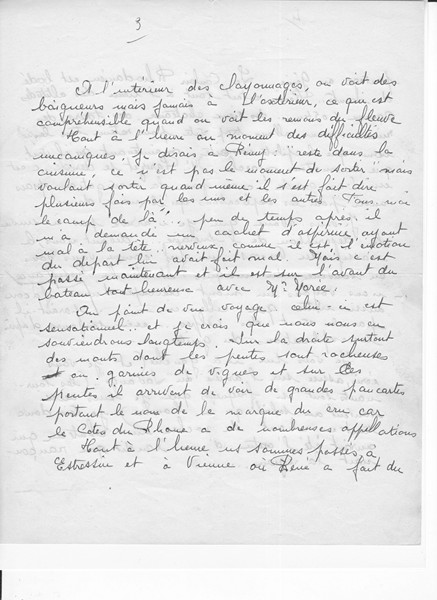 3
A l'intérieur des clayonnages, on voit des
baigneurs mais jamais à l'extérieur, ce qui est
compréhensible quand on voit les remous du fleuve
Tout à l'heure au moment des difficultés
mécaniques, je disais à Rémy: "reste dans la
cuisine, ce n'est pas le moment de sortir" mais
voulant sortir quand même il s'est fait dire
plusieurs fois par les uns et les autres
le camp de là".. peu de temps après, il
m'a demandé un cachet d'aspirine ayant
mal à la tête.. nerveux comme il est, l'émotion
du départ lui avait fait mal. Mais c'est
passé maintenant et il est sur l'avant du
bateau tout heureux avec
Au point de vue voyage celui-ci est
sensationnel.. et je crois que nous nous en
souviendrons longtemps. Sur la droite surtout
des monts dont les pentes sont rocheuses
ou garnies de vignes et sur ces
pentes il arrivent de voir de grandes pancartes
portant le nom de la marque du cru car
le Cotes du Rhone a de nombreuses appellations
Tout à l'heure ns sommes passés, à
Estressin et à Vienne où René a fait du